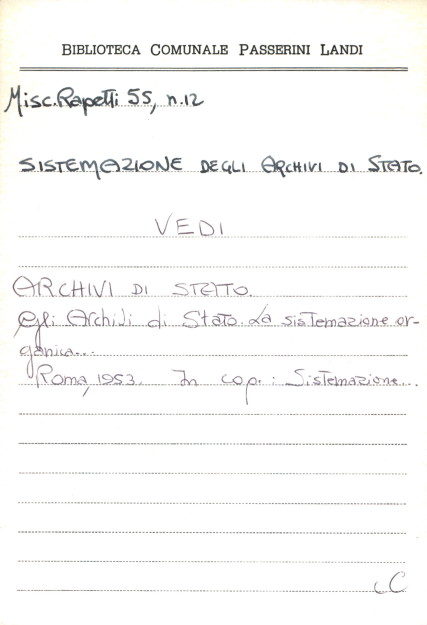 BIBLIOTECA COMUNALE PASSERINI LANDI
Misc. Rapetti 55, n. 12
SISTEMAZIONE DEGLI ARCHIVI DI STATO.
VEDI
ARCHIVI DI STATO.
Gli Archivi di Stato. La sistemazione or-
ganica...
Roma, 1953. In cop.: Sistemazione...
C